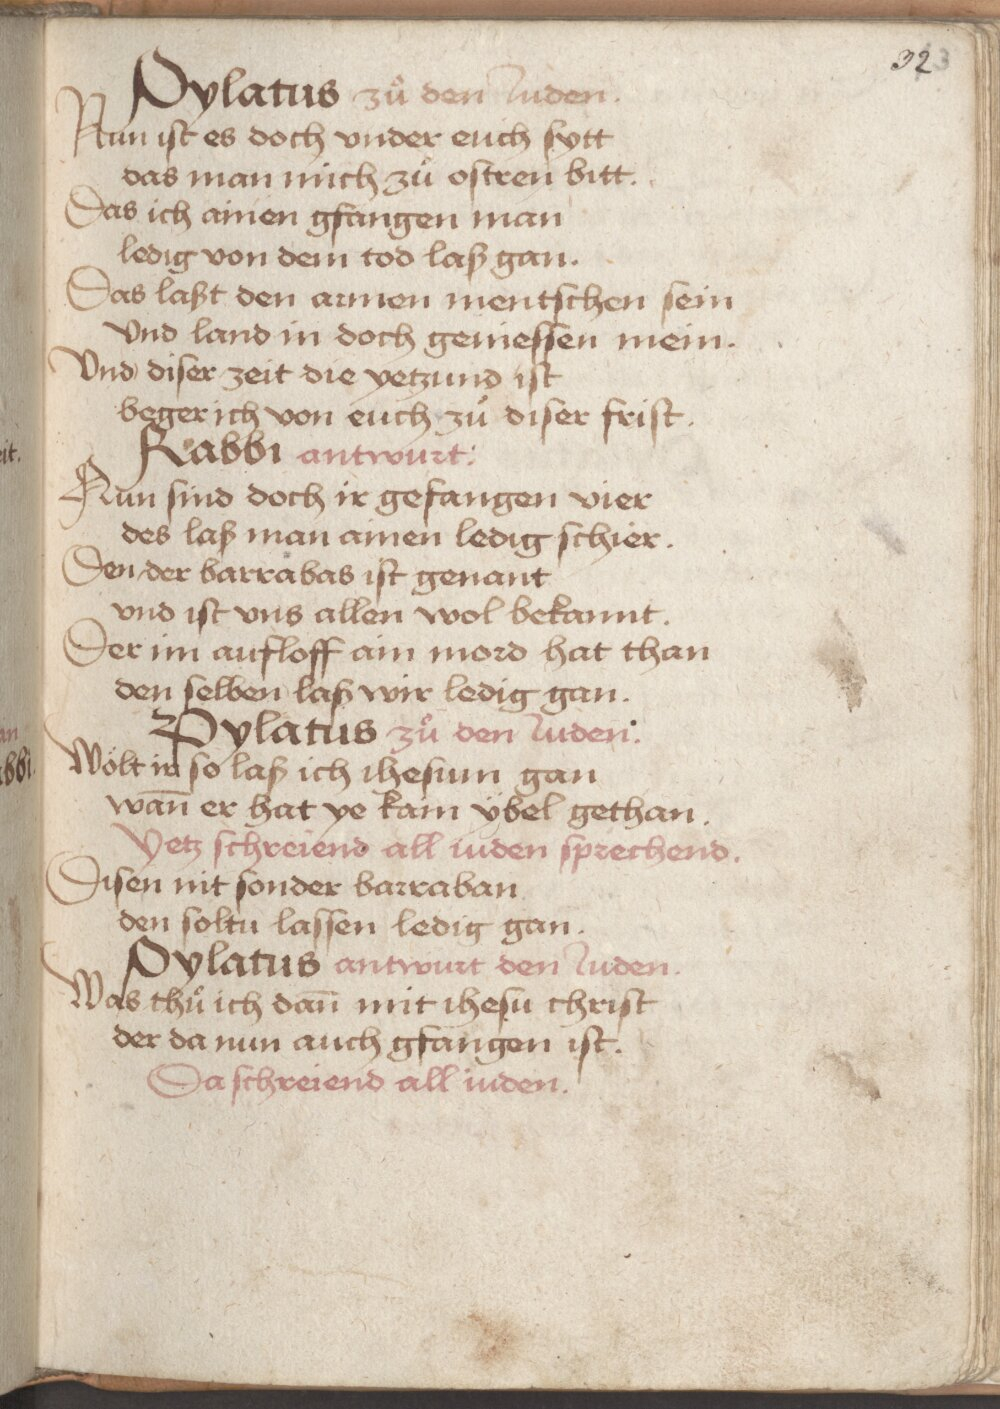 32
Pylatus zů den Juden.
Nun ist es doch vnder euch sytt
das man mich zů ostren bitt.
Das ich ainen gfangen man
ledig von dem tod laß gan.
Das laßt den armen mentschen sein
Vnd land in doch geniessen mein.
Vnd diser zeit die yetzund ist
beger ich von euch zů diser frist.
Rabbi antwurt:
Nun sind doch ir gefangen vier
des laß man ainen ledig schier.
Den der barrabas ist genant
vnd ist vns allen wol bekannt.
Der im aufloff ain mord hat than
den selben laß wir ledig gan.
Pylatus zů den Juden:
Wölt ir so laß ich ihesum gan
wañ er hat ye kain ÿbel gethan.
Yetz schreiend all iuden sprechend.
Disen nit sonder barraban
den soltu lassen ledig gan.
Pylatus antwurt den Juden.
Was thů ich dañ mit ihesu christ
der da nun auch gfangen ist.
Da schreiend all iuden.